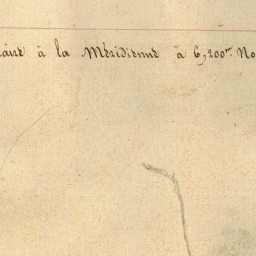 à la Méridienne à 6,200m. No